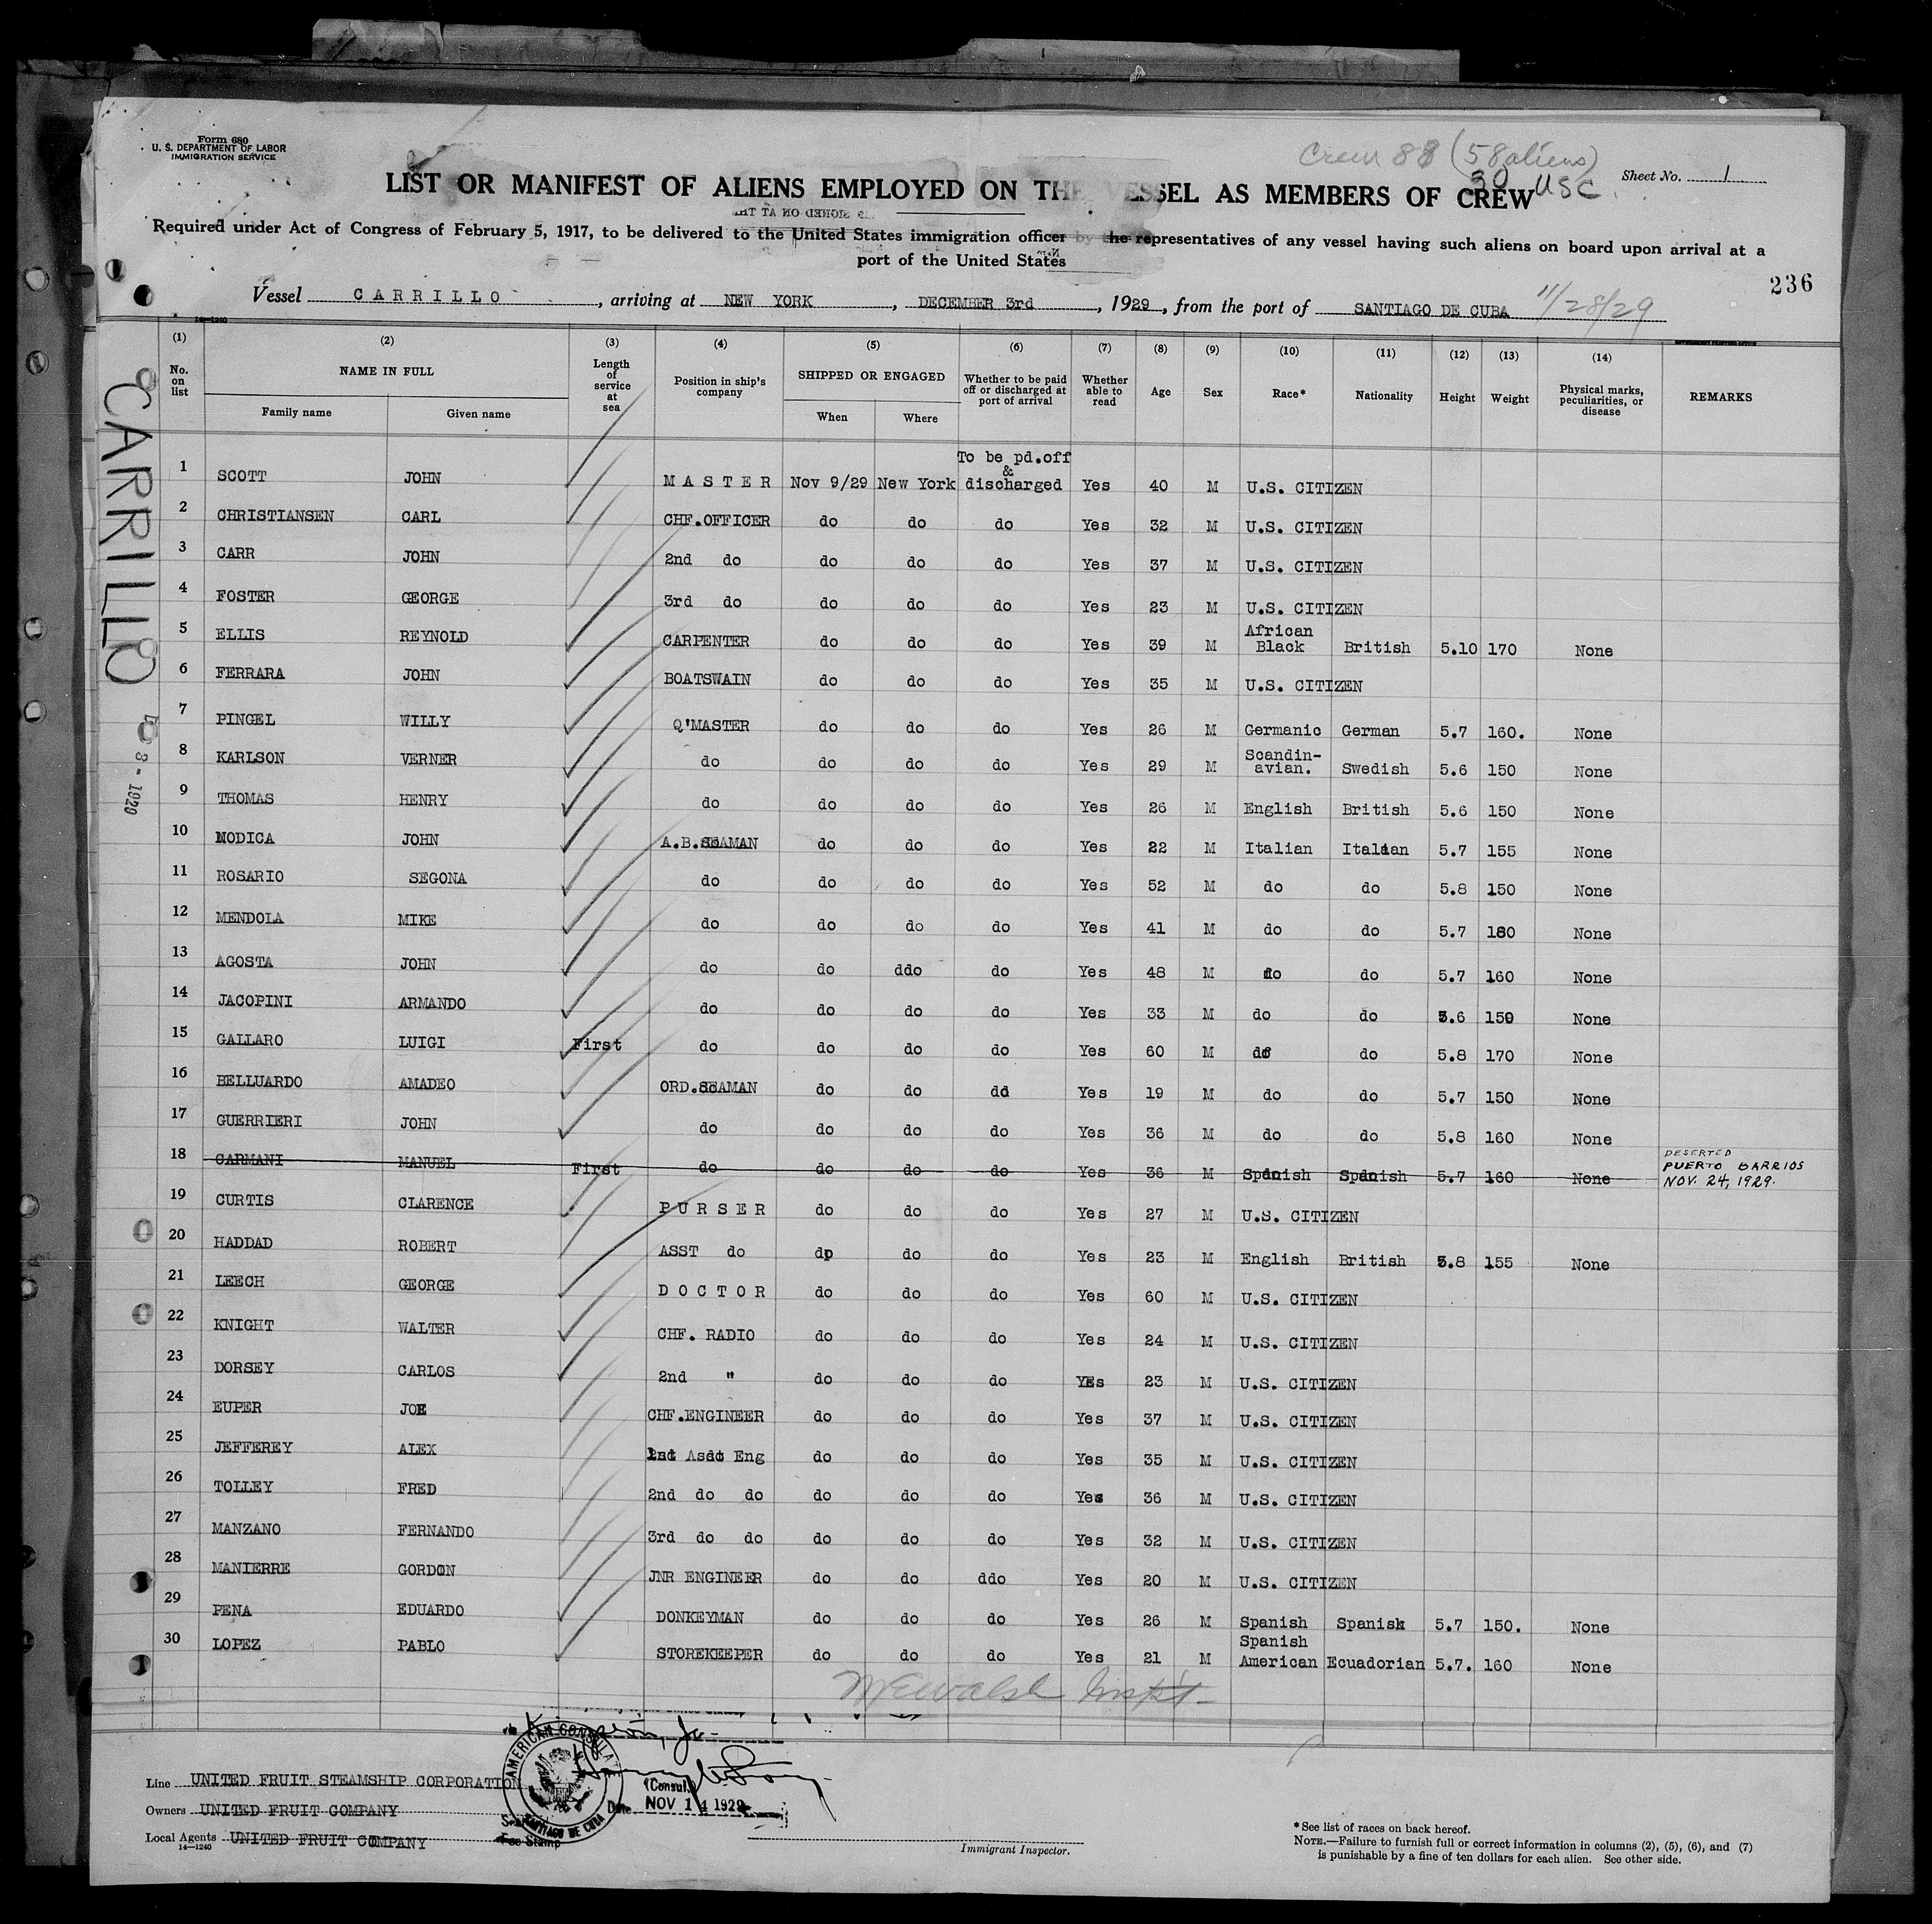 Form 680
U. S. DEPARTMENT OF LABOR
IMMIGRATION SERVICE
Crew 88 (58 aliens)
30 USC
Sheet No. 1
LIST OR MANIFEST OF ALIENS EMPLOYED ON THE VESSEL AS MEMBERS OF CREW
Required under Act of Congress of February 5, 1917, to be delivered to the United States immigration officer by the representatives of any vessel having such aliens on board upon arrival at a
port of the United States
236
Vessel CARRILLO, arriving at NEW YORK, DECEMBER 3rd, 1929, from the port of SANTIAGO DE CUBA 11/28/29
14—1240
(1) (2) (3) (4) (5) (6) (7) (8) (9) (10) (11) (12) (13) (14)
No. on list NAME IN FULL Length of service at sea Position in ship's company SHIPPED OR ENGAGED Whether to be paid off or discharged at port of arrival Whether able to read Age Sex Race* Nationality Height Weight Physical marks, peculiarities, or disease REMARKS
Family name Given name When Where
CARRILLO
To be pd.off
&
1 SCOTT JOHN MASTER Nov 9/29 New York discharged Yes 40 M U.S. CITIZEN
2 CHRISTIANSEN CARL CHF.OFFICER do do do Yes 32 M U.S. CITIZEN
3 CARR JOHN 2nd do do do do Yes 37 M U.S. CITIZEN
4 FOSTER GEORGE 3rd do do do do Yes 23 M U.S. CITIZEN
5 ELLIS REYNOLD CARPENTER do do do Yes 39 M African Black British 5.10 170 None
6 FERRARA JOHN BOATSWAIN do do do Yes 35 M U.S. CITIZEN
7 PINGEL WILLY Q'MASTER do do do Yes 26 M Germanic German 5.7 160. None
8 KARLSON VERNER do do do do Yes 29 M Scandin-avian. Swedish 5.6 150 None
9 THOMAS HENRY do do do do Yes 26 M English British 5.6 150 None
10 NODICA JOHN A.B.SEAMAN do do do Yes 22 M Italian Italian 5.7 155 None
11 ROSARIO SEGONA do do do do Yes 52 M do do 5.8 150 None
12 MENDOLA MIKE do do do do Yes 41 M do do 5.7 180 None
13 AGOSTA JOHN do do ddo do Yes 48 M do do 5.7 160 None
14 JACOPINI ARMANDO do do do do Yes 33 M do do 5.6 150 None
15 GALLARO LUIGI First do do do do Yes 60 M do do 5.8 170 None
16 BELLUARDO AMADEO ORD.SEAMAN do do dd Yes 19 M do do 5.7 150 None
17 GUERRIERI JOHN do do do do Yes 36 M do do 5.8 160 None
18 CARMANI MANUEL First do do do do Yes 36 M Spanish Spanish 5.7 160 None DESERTED PUERTO BARRIOS NOV. 24, 1929.
19 CURTIS CLARENCE PURSER do do do Yes 27 M U.S. CITIZEN
20 HADDAD ROBERT ASST do dp do do Yes 23 M English British 5.8 155 None
21 LEECH GEORGE DOCTOR do do do Yes 60 M U.S. CITIZEN
22 KNIGHT WALTER CHF. RADIO do do do Yes 24 M U.S. CITIZEN
23 DORSEY CARLOS 2nd " do do do Yes 23 M U.S. CITIZEN
24 EUPER JOE CHF.ENGINEER do do do Yes 37 M U.S. CITIZEN
25 JEFFEREY ALEX 1st Asst Eng do do do Yes 35 M U.S. CITIZEN
26 TOLLEY FRED 2nd do do do do do Yes 36 M U.S. CITIZEN
27 MANZANO FERNANDO 3rd do do do do do Yes 32 M U.S. CITIZEN
28 MANIERRE GORDON JNR ENGINEER do do ddo Yes 20 M U.S. CITIZEN
29 PENA EDUARDO DONKEYMAN do do do Yes 26 M Spanish Spanish 5.7 150. None
30 LOPEZ PABLO STOREKEEPER do do do Yes 21 M Spanish American Ecuadorian 5.7. 160 None
Line UNITED FRUIT STEAMSHIP CORPORATION
Owners UNITED FRUIT COMPANY
Local Agents UNITED FRUIT COMPANY
14—1240
AMERICAN CONSULATE
SANTIAGO DE CUBA
(Consul)
Date NOV 14 1929
Fee Stamp
Immigrant Inspector.
*See list of races on back hereof.
NOTE.—Failure to furnish full or correct information in columns (2), (5), (6), and (7)
is punishable by a fine of ten dollars for each alien. See other side.